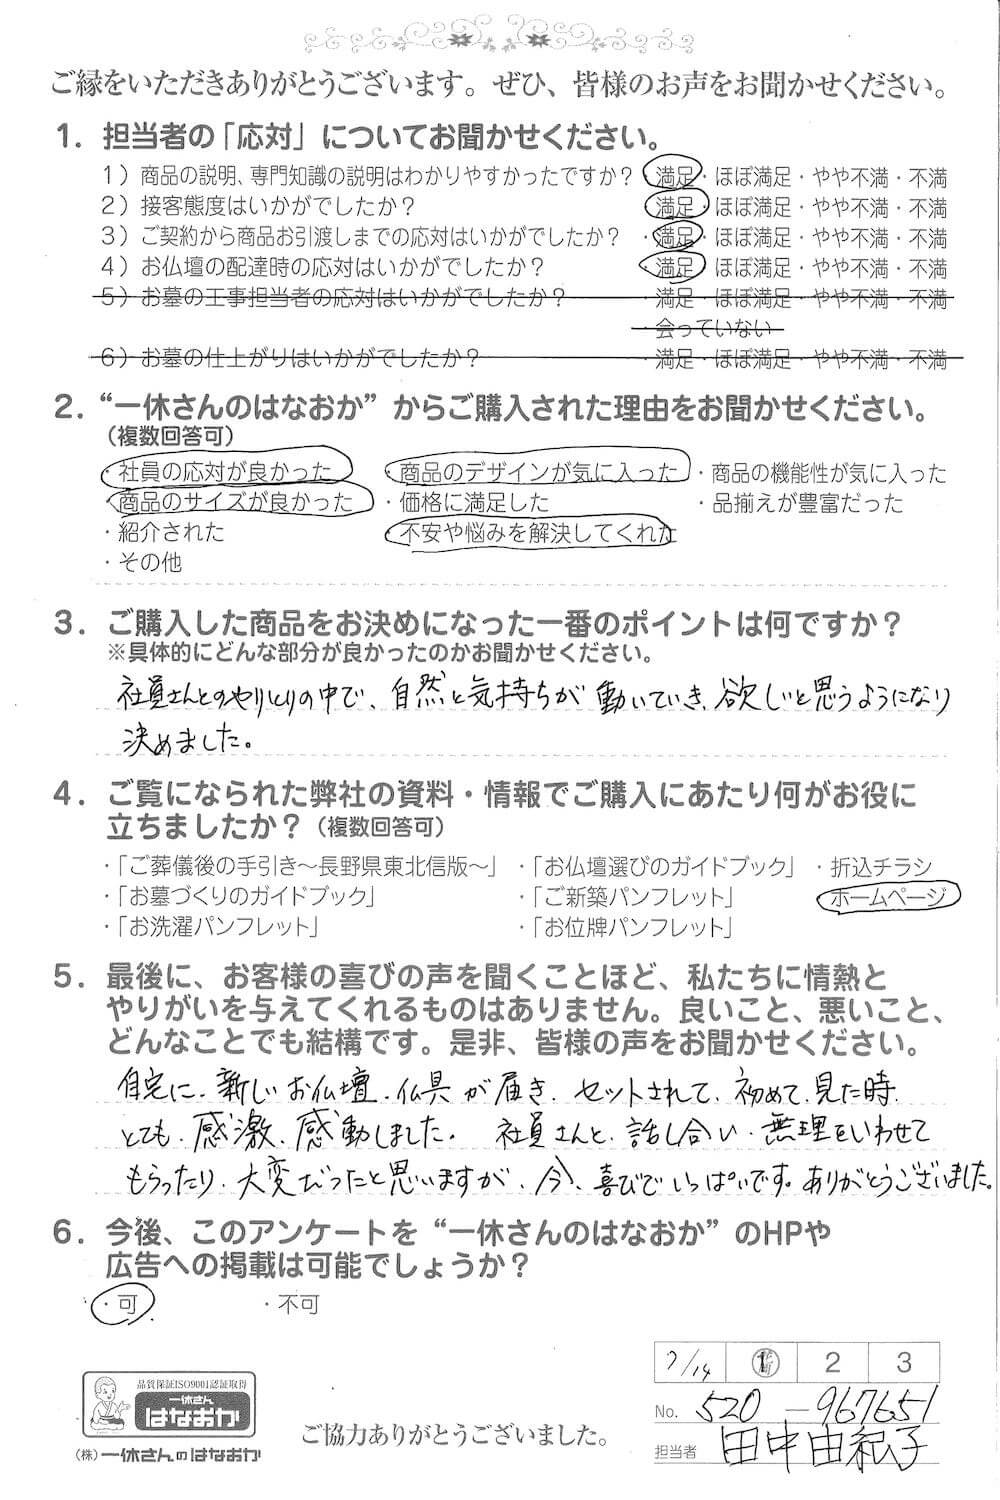 ご縁をいただきありがとうございます。ぜひ、皆様のお声をお聞かせください。
1．担当者の「応対」についてお聞かせください。
1）商品の説明、専門知識の説明はわかりやすかったですか？ ・満足・ほぼ満足・やや不満・不満
2）接客態度はいかがでしたか？ ・満足・ほぼ満足・やや不満・不満
3）ご契約から商品お引渡しまでの応対はいかがでしたか？ ・満足・ほぼ満足・やや不満・不満
4）お仏壇の配達時の応対はいかがでしたか？ ・満足・ほぼ満足・やや不満・不満
5）お墓の工事担当者の応対はいかがでしたか？ ・満足・ほぼ満足・やや不満・不満
・会っていない
6）お墓の仕上がりはいかがでしたか？ ・満足・ほぼ満足・やや不満・不満
2．“一休さんのはなおか”からご購入された理由をお聞かせください。
（複数回答可）
・社員の応対が良かった ・商品のデザインが気に入った ・商品の機能性が気に入った
・商品のサイズが良かった ・価格に満足した ・品揃えが豊富だった
・紹介された ・不安や悩みを解決してくれた
・その他
3．ご購入した商品をお決めになった一番のポイントは何ですか？
※具体的にどんな部分が良かったのかお聞かせください。
社員さんとのやりとりの中で、自然と気持ちが動いていき、欲しいと思うようになり
決めました。
4．ご覧になられた弊社の資料・情報でご購入にあたり何がお役に
立ちましたか？（複数回答可）
・「ご葬儀後の手引き～長野県東北信版～」 ・「お仏壇選びのガイドブック」 ・折込チラシ
・「お墓づくりのガイドブック」 ・「ご新築パンフレット」 ・ホームページ
・「お洗濯パンフレット」 ・「お位牌パンフレット」
5．最後に、お客様の喜びの声を聞くことほど、私たちに情熱と
やりがいを与えてくれるものはありません。良いこと、悪いこと、
どんなことでも結構です。是非、皆様の声をお聞かせください。
自宅に、新しいお仏壇、仏具が届き、セットされて、初めて、見た時、
とても、感激、感動しました。 社員さんと、話し合い、無理をいわせて
もらったり、大変だったと思いますが、今、喜びでいっぱいです。ありがとうございました。
6．今後、このアンケートを“一休さんのはなおか”のHPや
広告への掲載は可能でしょうか？
・可 ・不可
7/14 1 2 3
品質保証ISO9001認証取得
一休さん
はなおか
No. 520-967651
（株）一休さんのはなおか
ご協力ありがとうございました。
担当者 田中由紀子